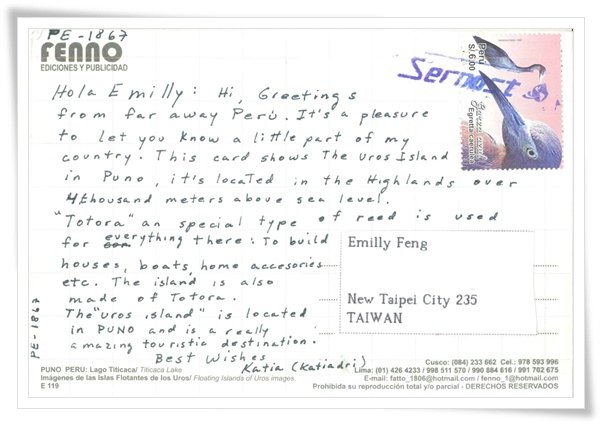 PE-1867
FENNO
EDICIONES Y PUBLICIDAD
Perú
S/. 6.00
Egretta caerulea
Serpost
Hola Emilly: Hi, Greetings
from far away Perú. It's a pleasure
to let you know a little part of my
country. This card shows The Uros Island
in Puno, it's located in the Highlands over
4thousand meters above sea level.
"Totora" an special type of reed is used
for everything there: To build
houses, boats, home accesories
etc. The island is also
made of Totora.
The "Uros island" is located
in PUNO and is a really
amazing touristic destination.
Best Wishes
Katia (Katiadri)
Emilly Feng
New Taipei City 235
TAIWAN
PE-1867
PUNO PERU: Lago Titicaca / Titicaca Lake
Imágenes de las Islas Flotantes de los Uros / Floating Islands of Uros images.
E 119
Cusco: (084) 233 662 Cel.: 978 593 996
Lima: (01) 426 4233 / 998 511 570 / 990 884 616 / 991 702 675
E-mail: fatto_1806@hotmail.com / fenno_1@hotmail.com
Prohibida su reproducción total y/o parcial - DERECHOS RESERVADOS